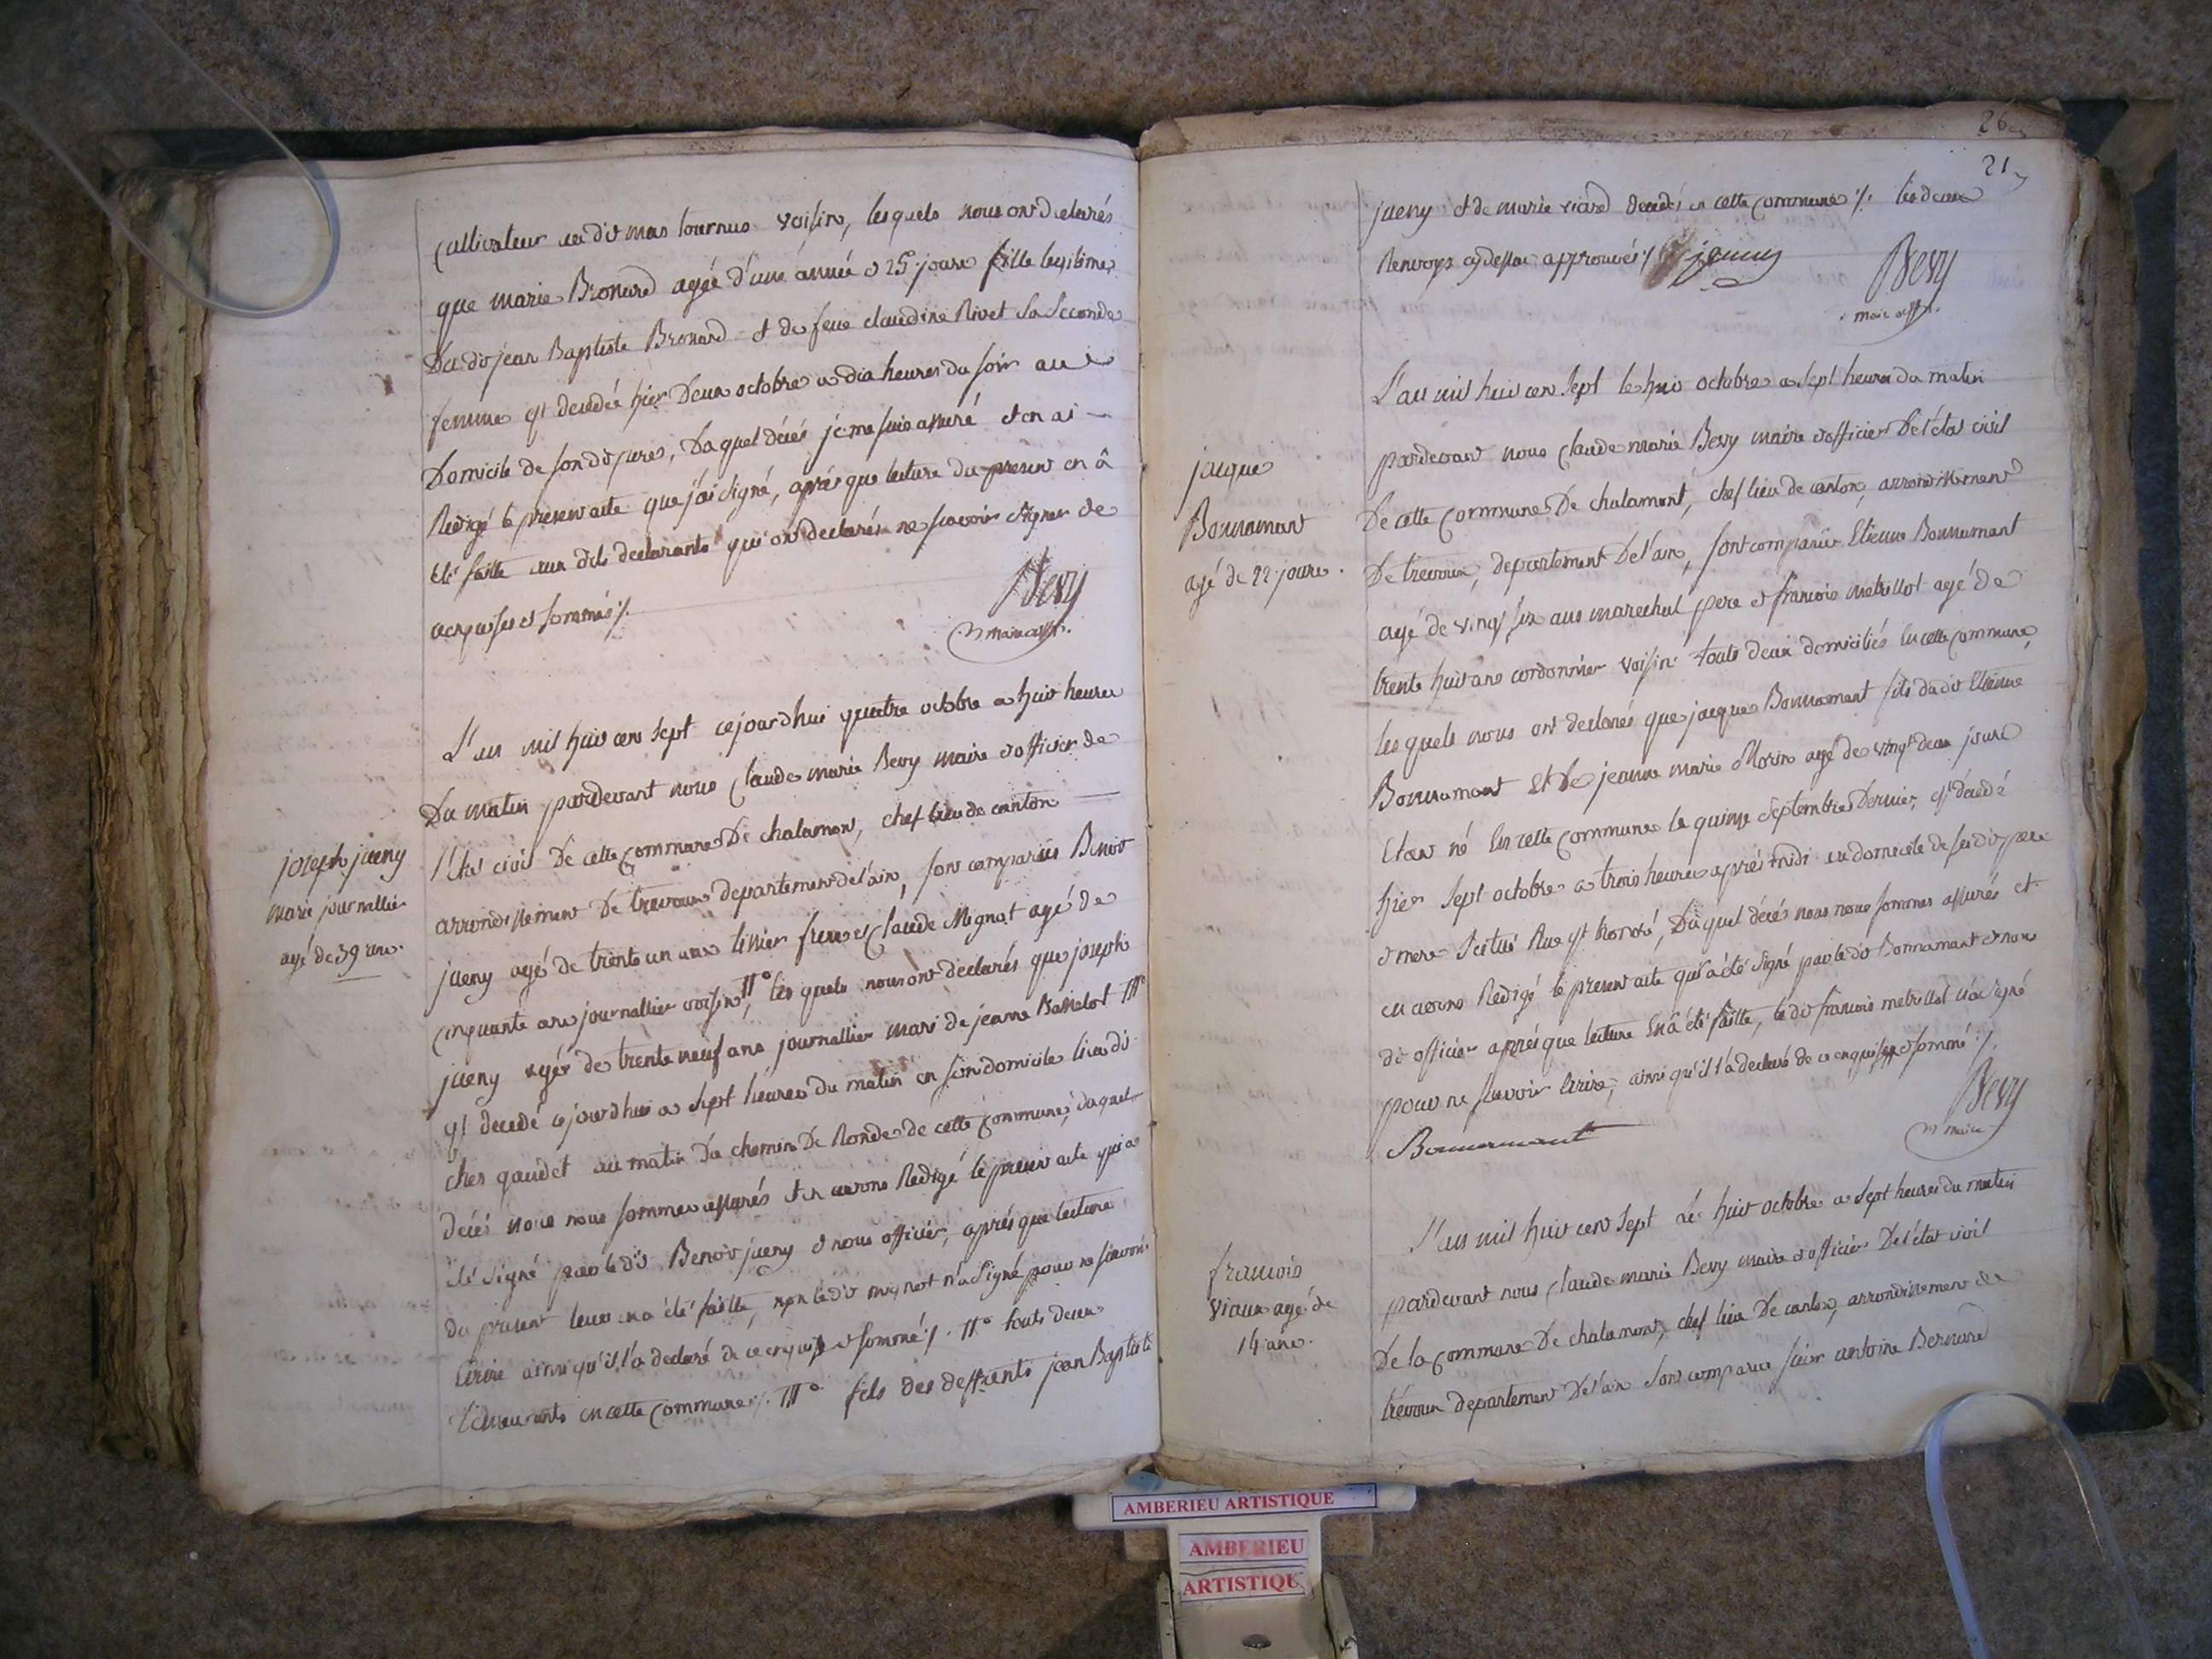 cultivateur au dit mas tournus voisin, lesquels nous ont declarés
que marie Bronard agée d'une année et 25 jours fille legitime
Du dit jean Baptiste Bronard et de feue claudine Rivet sa seconde
femme est decedée hier Deux octobre a dix heures du soir au
Domicile de son dit pere, Duquel décés je me suis assuré et en ai
Redigé le present acte que j'ai signé, aprés que lecture du present en â
eté faitte aux dits declarants qui ont declarés ne scavoir signer de
ce enquis et sommés ./.
Bevy
maire off.
joseph jueny
marié journallier
agé de 39 ans.
L'an mil huit cent sept cejourdhui quatre octobre a huit heures
Du matin pardevant nous Claude marie Bevy maire et officier de
l'état civil De cette Commune De chalamont, chef lieu de canton
arrondissement De trevoux departement de l'ain, sont comparûs Benoit
jueny agé de trente un ans frere et Claude Mignot agé de
Cinquante ans journallier voisin II° les quels nous ont declarés que joseph
jueny agé de trente neuf ans journallier mari de jeanne III°
est decedé cejourdhui a sept heures du matin en son domicile lieu dit
ches gaudet au matin Du chemin De Ronde de cette Commune, duquel
décés nous nous sommes assurés et en avons Redigé le present acte qui a
été signé par le dit Benoit jueny et nous officier, aprés que lecture
du present leur en a été faitte, non le dit mignot n'a signé pour ne scavoir
Ecrire ainsi qu'il l'a declaré de ce enquis et sommé ./. II° touts deux
demeurants en cette Commune ./. III° fils des deffunts jean Baptiste
26
21
jueny et de marie ricard decedés en cette Commune ./. les deux
Renvoys cy dessus approuvés ./. jueny
Bevy
maire off.
jacque
Bonnamant
agé de 22 jours.
L'an mil huit cent sept le huit octobre a sept heures du matin
pardevant nous Claude marie Bevy maire et officier De l'état civil
De cette Commune De chalamont, chef lieu de canton, arrondissement
De trevoux, departement De l'ain, sont comparûs Etienne Bonnamant
agé de vingt six ans marechal pere et francois metrillot agé de
trente huit ans cordonnier voisin touts deux domiciliés en cette Commune,
les quels nous ont declarés que jacque Bonnamant fils du dit Etienne
Bonnamant Et De jeanne marie Morin agé de vingt deux jours
Etant né En cette Commune le quinze septembre Dernier, est décedé
hier sept octobre a trois heures aprés midi au domicile de ses dit pere
et mere scitué Rue st honoré, Duquel décés nous nous sommes assurés et
en avons Redigé le present acte qui a été signé par le dit Bonnamant et nous
dit officier aprés que lecture En a été faitte, le dit francois metrillot n'a signé
pour ne scavoir Ecrire, ainsi qu'il l'a declaré de ce enquis et sommé ./.
Bonnamant
Bevy
maire
francois
viaux agé de
14 ans.
L'an mil huit cent sept Le huit octobre a sept heures du matin
pardevant nous Claude marie Bevy maire et officier De l'état civil
De la Commune De chalamont, chef lieu De canton, arrondissement de
trévoux departement De l'ain sont comparus sieur antoine Bernard
AMBERIEU ARTISTIQUE
AMBERIEU
ARTISTIQUE